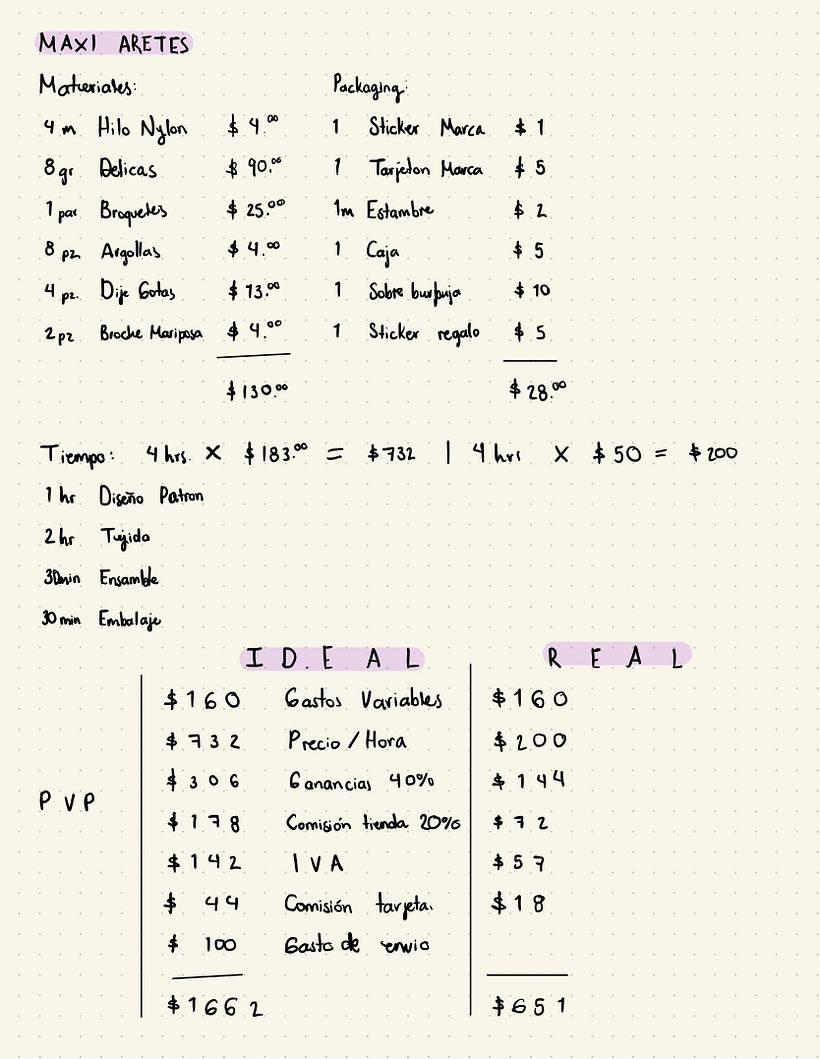 MAXI ARETES
Materiales: Packaging:
4 m Hilo Nylon $ 4.00 1 Sticker Marca $ 1
8 gr Delicas $ 90.00 1 Tarjeton Marca $ 5
1 par Broqueles $ 25.00 1m Estambre $ 2
8 pz Argollas $ 4.00 1 Caja $ 5
4 pz. Dije Gotas $ 13.00 1 Sobre burbuja $ 10
2 pz Broche Mariposa $ 4.00 1 Sticker regalo $ 5
$ 130.00 $ 28.00
Tiempo: 4 hrs. X $ 183.00 = $ 732 | 4 hrs X $ 50 = $ 200
1 hr Diseño Patron
2 hr Tejido
30min Ensamble
30 min Embalaje
IDEAL REAL
$ 160 Gastos Variables $ 160
$ 732 Precio / Hora $ 200
$ 306 Ganancias 40% $ 144
PVP
$ 178 Comisión tienda 20% $ 72
$ 142 IVA $ 57
$ 44 Comisión tarjeta. $ 18
$ 100 Gasto de envio
$ 1662 $ 651